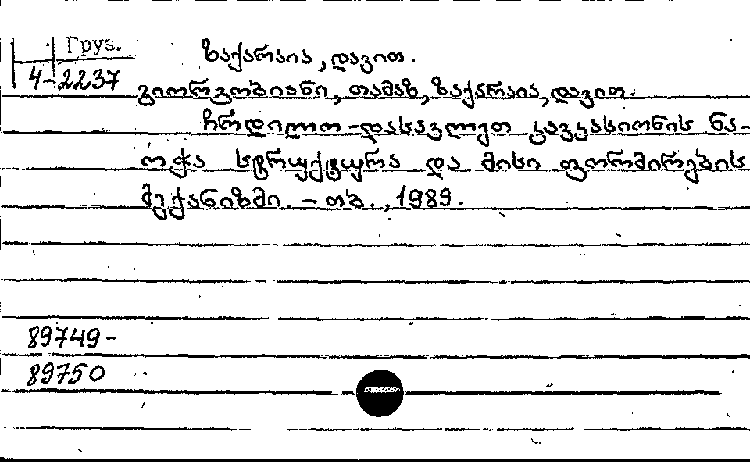 Груз.
4-2237
ზაქარაია, დავით.
გიორგობიანი, თამაზ, ზაქარაია, დავით.
ჩრდილო-დასავლეთ კავკასიონის ნა-
ოჭა სტრუქტურა და მისი ფორმირების
მექანიზმი. - თბ., 1989.
89749-
89750